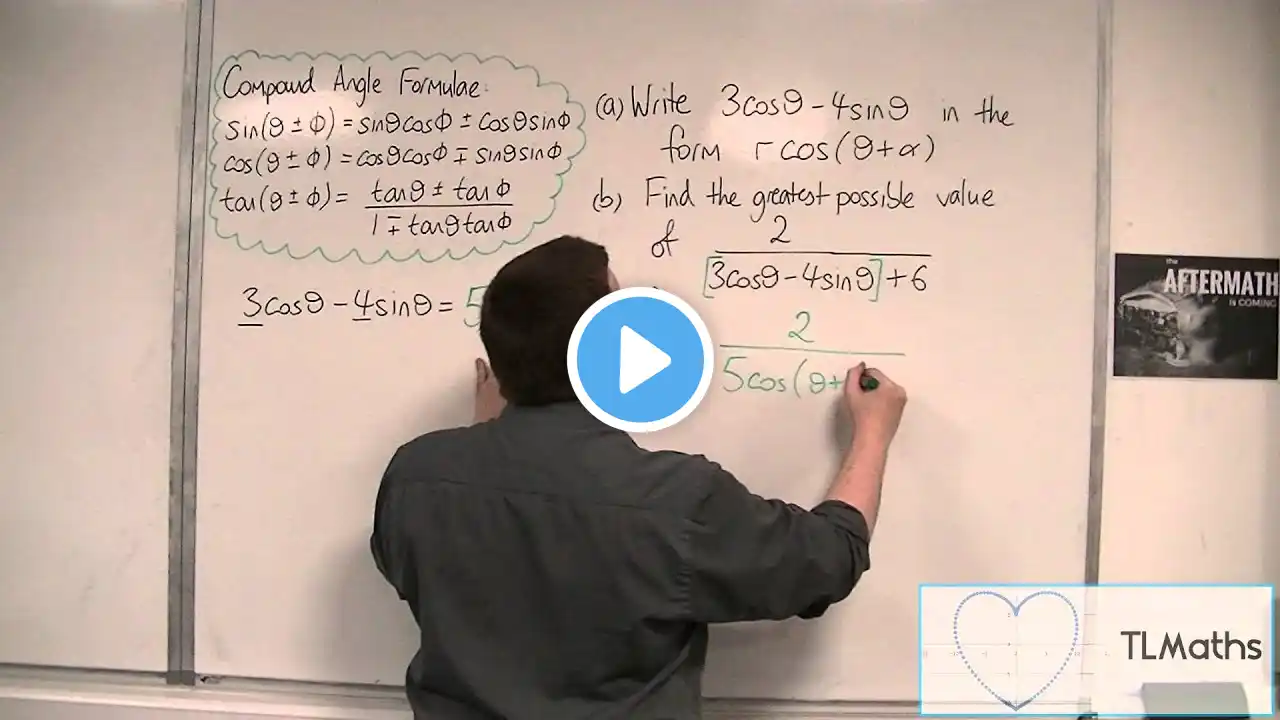 Compound Angle Formulae:
sin(θ ± φ) = sinθcosφ ± cosθsinφ
cos(θ ± φ) = cosθcosφ ∓ sinθsinφ
tan(θ ± φ) = tanθ ± tanφ
1 ∓ tanθtanφ
3cosθ - 4sinθ = 5
(a) Write 3cosθ - 4sinθ in the
form rcos(θ+α)
(b) Find the greatest possible value
of 2
[3cosθ - 4sinθ] + 6
2
5cos(θ+
the
AFTERMATH
IS COMING
TLMaths